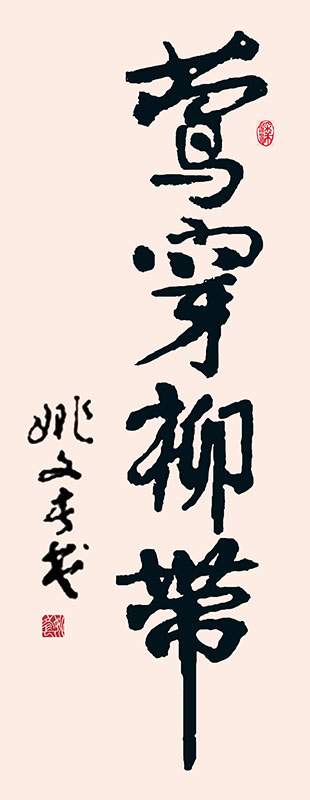 莺穿柳带
姚文春书